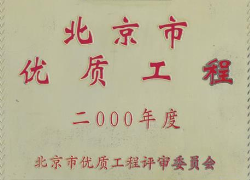 北京市
优质工程
二000年度
北京市优质工程评审委员会